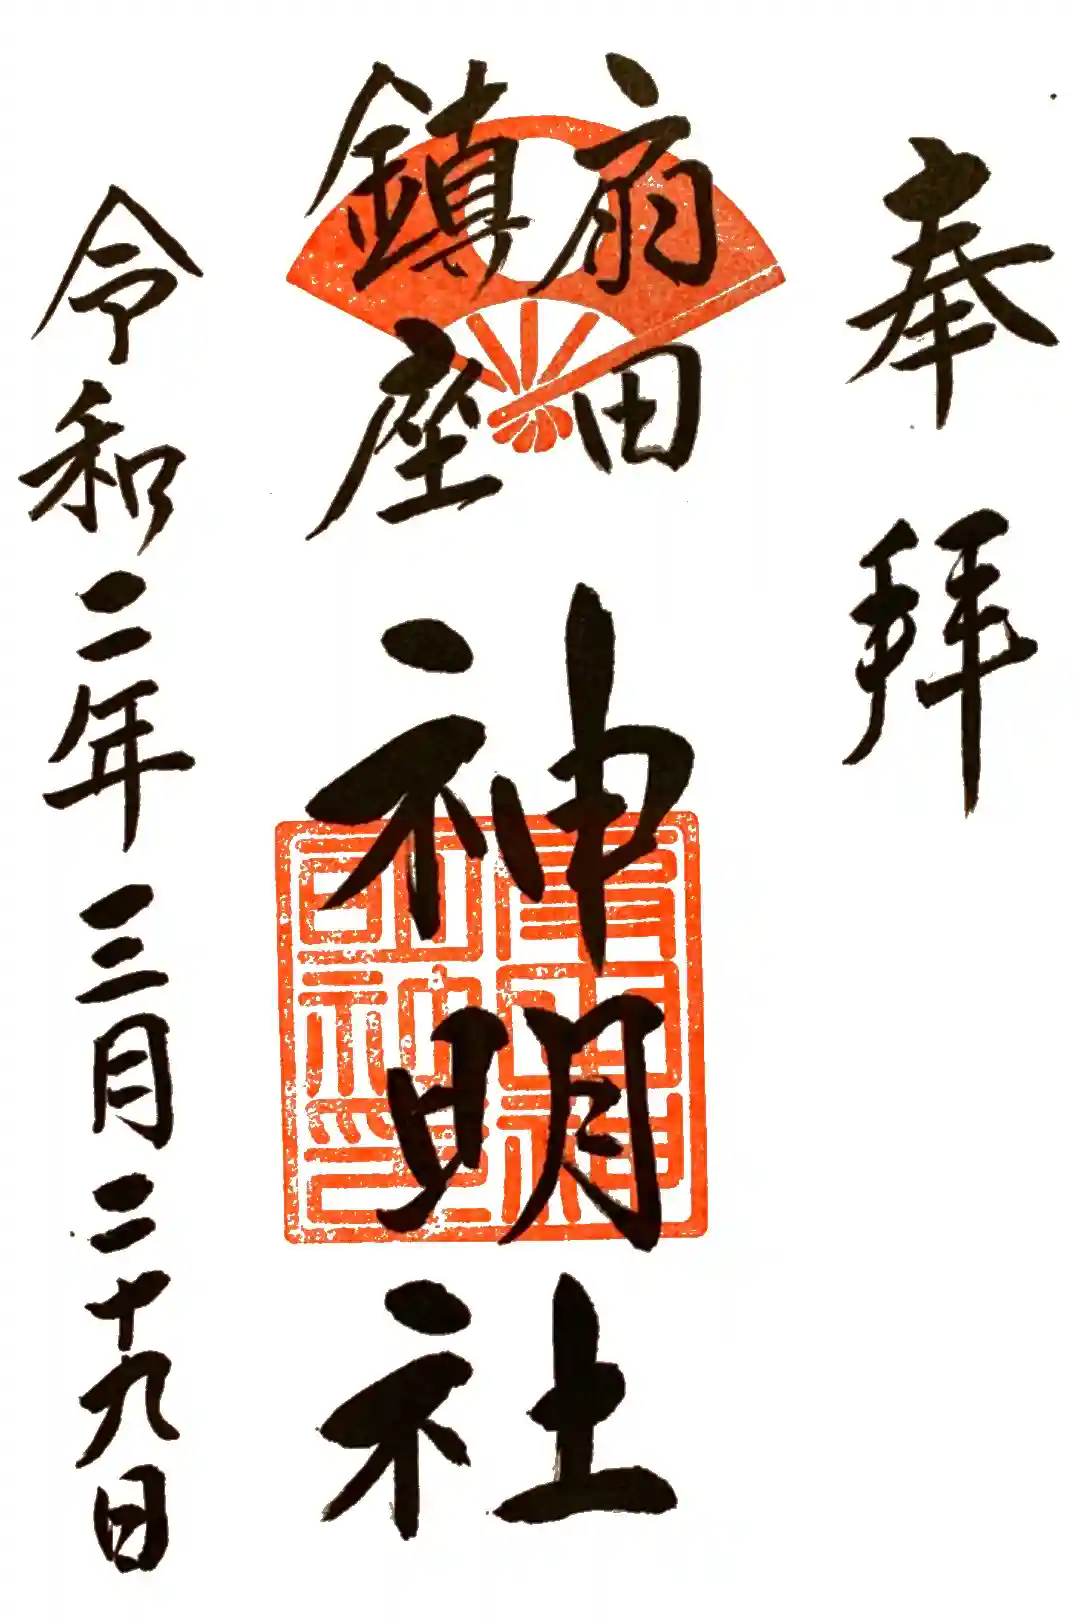 奉拝
扇田
鎮座
神明社
令和二年三月二十九日